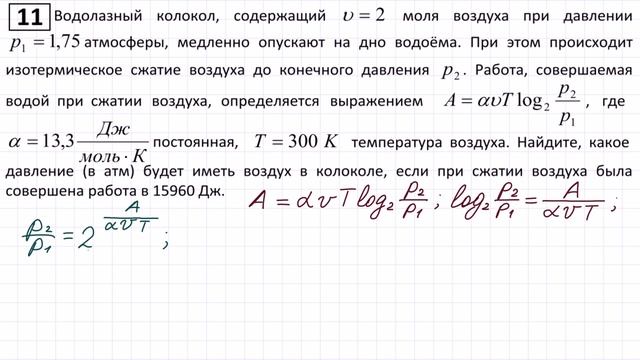 11 Водолазный колокол, содержащий υ = 2 моля воздуха при давлении
p₁ = 1,75 атмосферы, медленно опускают на дно водоёма. При этом происходит
изотермическое сжатие воздуха до конечного давления p₂. Работа, совершаемая
водой при сжатии воздуха, определяется выражением A = αυT log₂ p₂/p₁, где
α = 13,3 Дж/(моль · К) постоянная, T = 300 K температура воздуха. Найдите, какое
давление (в атм) будет иметь воздух в колоколе, если при сжатии воздуха была
совершена работа в 15960 Дж.
A = αυT log₂ p₂/p₁ ; log₂ p₂/p₁ = A/(αυT) ;
p₂/p₁ = 2^(A/(αυT)) ;